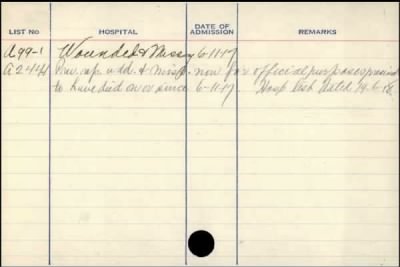 LIST No HOSPITAL DATE OF ADMISSION REMARKS
A99-1 Wounded & Missg 6-11-17
A2444 Prev. rep. wdd. & Missg. now for official purposes presumed
to have died on or since 6-11-17. Hosp. List Dated 19-6-18.